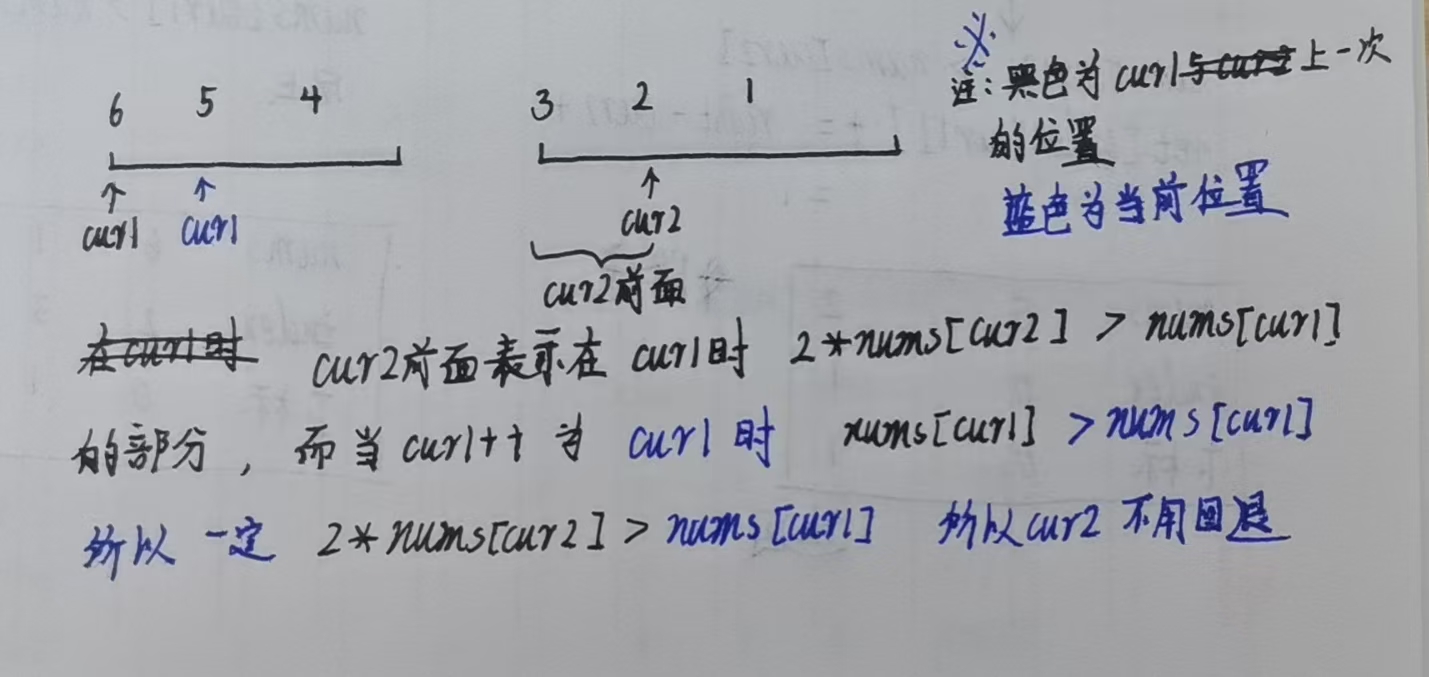 6 5 4 3 2 1
※
注：黑色为 cur1与cur2上一次
的位置
蓝色为当前位置
cur1 cur1 cur2
cur2前面
在cur1时 cur2前面表示在 cur1时 2*nums[cur2] > nums[cur1]
的部分，而当 cur1++ 为 cur1 时 nums[cur1] > nums[cur1]
所以 一定 2*nums[cur2] > nums[cur1] 所以cur2 不用回退